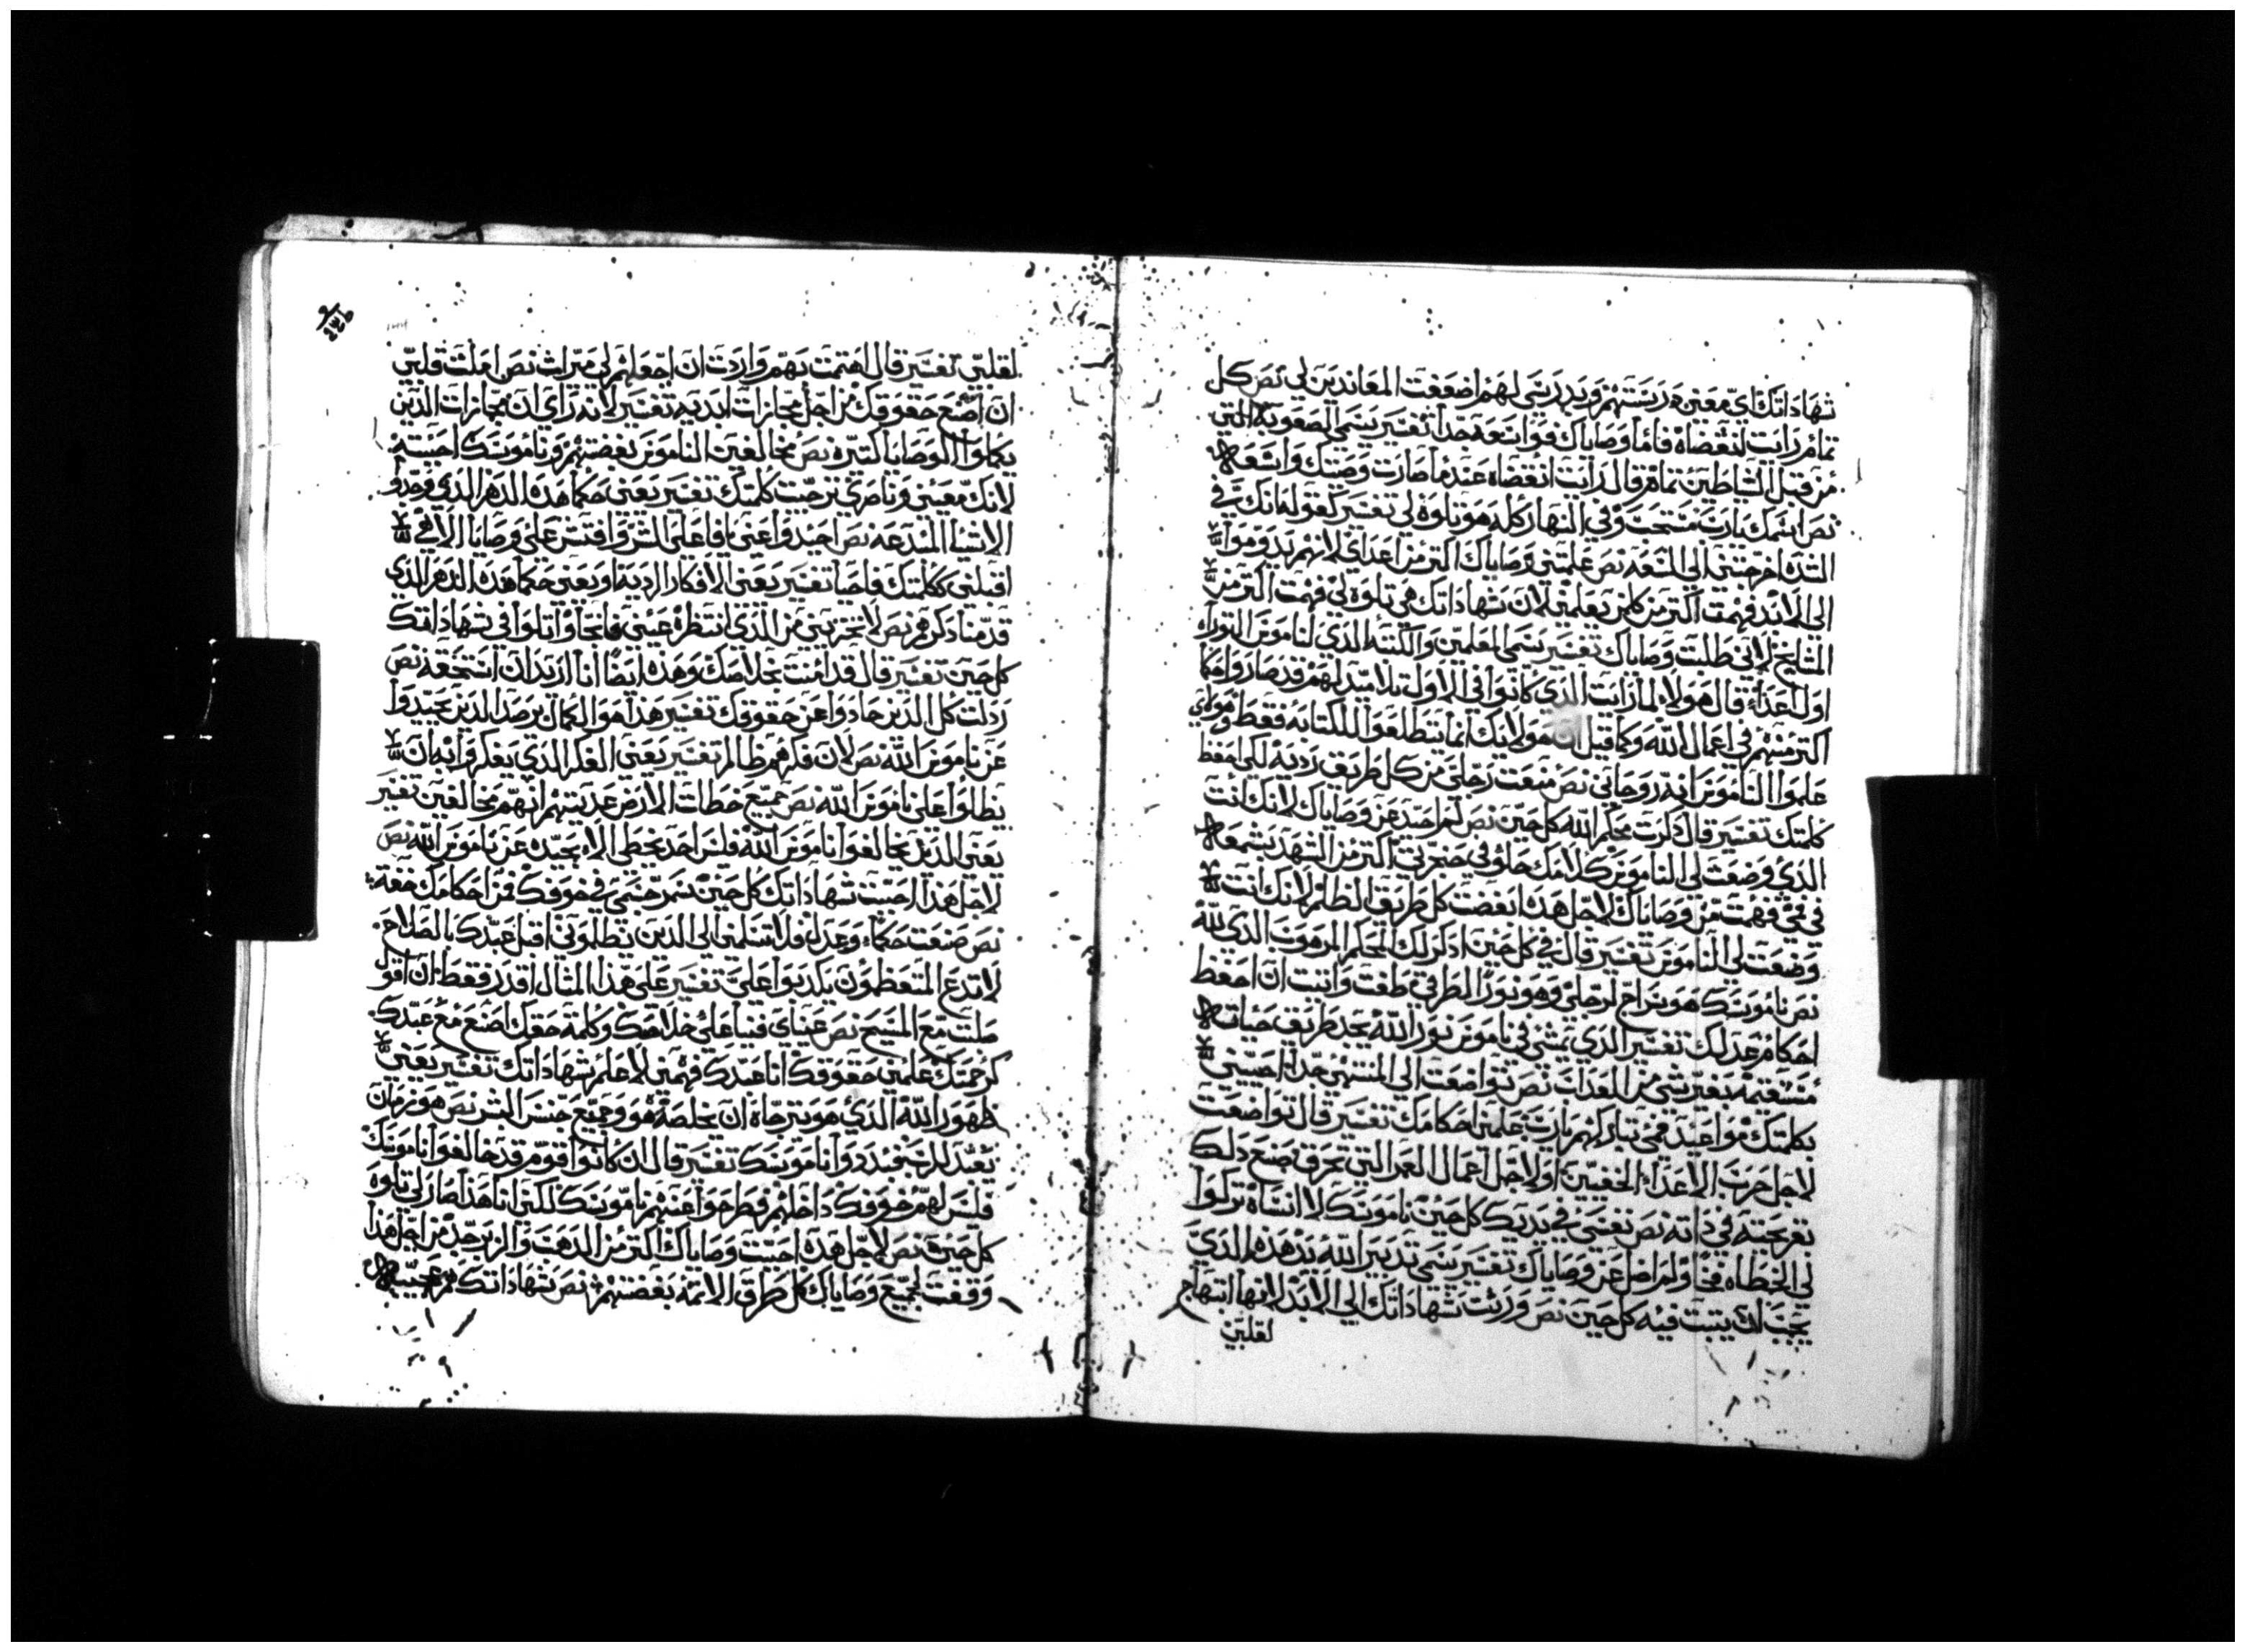 شهاداتك اي معني درستهم وبدرستي لهم اضعفت المعاندين لي نص كل
تمام رايت انقضاه فاما وصاياك فواسعه جدا تفسير يسمي الصعوبه التي
من قبل الشياطين تمام قال رايت انقضاه عندما صارت وصيتك واسعه
نص اسمك يارب فسبحت وفي النهار كله هو تلاوة لي تفسير كقوله انك في
الشده اخرجتني الي السعه نص علمتني وصاياك اكثر من اعداي لانهم يدوموا
الي الابد فهمت اكثر من كلمن يعلمني لان شهاداتك هي تلاوة لي فهمت اكثر من
المشايخ لاني طلبت وصاياك تفسير يسمي المعلمين والكتبه الذي لناموس التوراه
اول اعداء قال هولاء لما رايت الذي كانوا في الاول تلاميد لهم قد صاروا حكما
اكثر منهم في اعمال الله وكما قيل ان هولانك انما يتطلعوا للكتابه فقط وهولاي
علموا الناموس انه روحاني نص منعت رجلي من كل طريق رديه لكي احفظ
كلمتك تفسير قال ذكرت محكم الله كل حين نص لم احيد عن وصاياك لانك انت
الذي وضعت لي الناموس كلامك حلو في حنجرتي اكثر من الشهد بشمعه
في فمي فهمت من وصاياك لاجل هذا بغضت كل طريق الظلم لانك انت
وضعت لي الناموس تفسير قال في كل حين اذكر لك المحكم المرهوب الذي لله
نص ناموسك هو سراج لرجلي وهو نورا لطرقي حلفت واتيت ان احفظ
احكام عدلك تفسير الذي يمشي في ناموس نور الله يجد طريق حياته
مستقيمة بغير شي من العداب نص تواضعت الي المنتهي جدا احييني
بكلمتك مواعيد فمي تباركهم يارب علمني احكامك تفسير قال تواضعت
لاجل حرب الاعداء الخفيين او لاجل اعمال العمر التي تحرق تصنع دلك
تعريجته في داته نص نفسي في يديك كل حين ناموسك لا انساه تركوا
لي الخطاه فخا ولم اضل عن وصاياك تفسير يسمي تدبير الله يد هذه الذي
يجب ان يتبت فيه كل حين نص ورثت شهاداتك الي الابد لانها ابتهاج
لقلبي
لقلبي تفسير قال اهتممت بهم واردت ان اجعلهم لي ميراث نص املت قلبي
ان اصنع حقوقك من اجل مجازات ابديه تفسير لانه راي ان مجازات الذين
يكملوا الوصايا كتيره نص مخالفين الناموس بغضتهم وناموسك احببته
لانك معيني وناصري ترجيت كلمتك تفسير يعني حكما هذه الدهر الذي وجدوا
الاشيا المبتدعه نص احيدوا عني يا فاعلي الشر وافتش علي وصايا الاهي
اقبلني ككلمتك فاحيا تفسير يعني الافكار الرديه او يعني حكما هذه الدهر الذي
قدمنا ذكرهم نص لا تخزيني من الذي انتظره عيني فانجا واتلوا في شهاداتك
كل حين تفسير قال قد امنت بخلاصك وهذه ايضا انا اريد ان استحقه نص
رذلت كل الذين حادوا عن حقوقك تفسير هذا هو الكمال يرصد الذين يحيدوا
عن ناموس الله نص لان فكرهم ظالم تفسير يعني الفكر الذي يفكروا به ان
يظلوا علي ناموس الله نص جميع خطات الارض عديتهم انهم مخالفين تفسير
يعني الذين يخالفوا ناموس الله فليس احد يخطي الا يحيده عن ناموس الله نص
لاجل هذا احببت شهاداتك كل حين سمر جسمي في خوفك فمن احكامك خفت
نص صنعت حكما وعدلا فلا تسلمني الي الذين يظلموني اقبل عبدك بالصلاح
لا تدع المتعظمون يكدبوا علي تفسير علي هذا المثال اقدر فقط ان اقول
صلبت مع المسيح نص عيناي فنيا علي خلاصك وكلمة حقك اصنع مع عبدك
كرحمتك علمني حقوقك انا عبدك فهمني لاعلم شهاداتك تفسير يعني
ظهور الله الذي هو يترجاه ان يخلصه هو وجميع جنس البشر نص هو زمان
يتعبد للرب فبددوا ناموسك تفسير قال ان كانوا قوم قد خالفوا ناموسك
فليس لهم خوفك داخلهم فطرحوا عنهم ناموسك لكن انا هذا صار لي تلاوة
كل حين نص لاجل هذه احببت وصاياك اكثر من الذهب والزبرجد من اجل هذا
وقفت لجميع وصاياك كل طرق الاتمه بغضتهم نص شهاداتك هم عجيبه